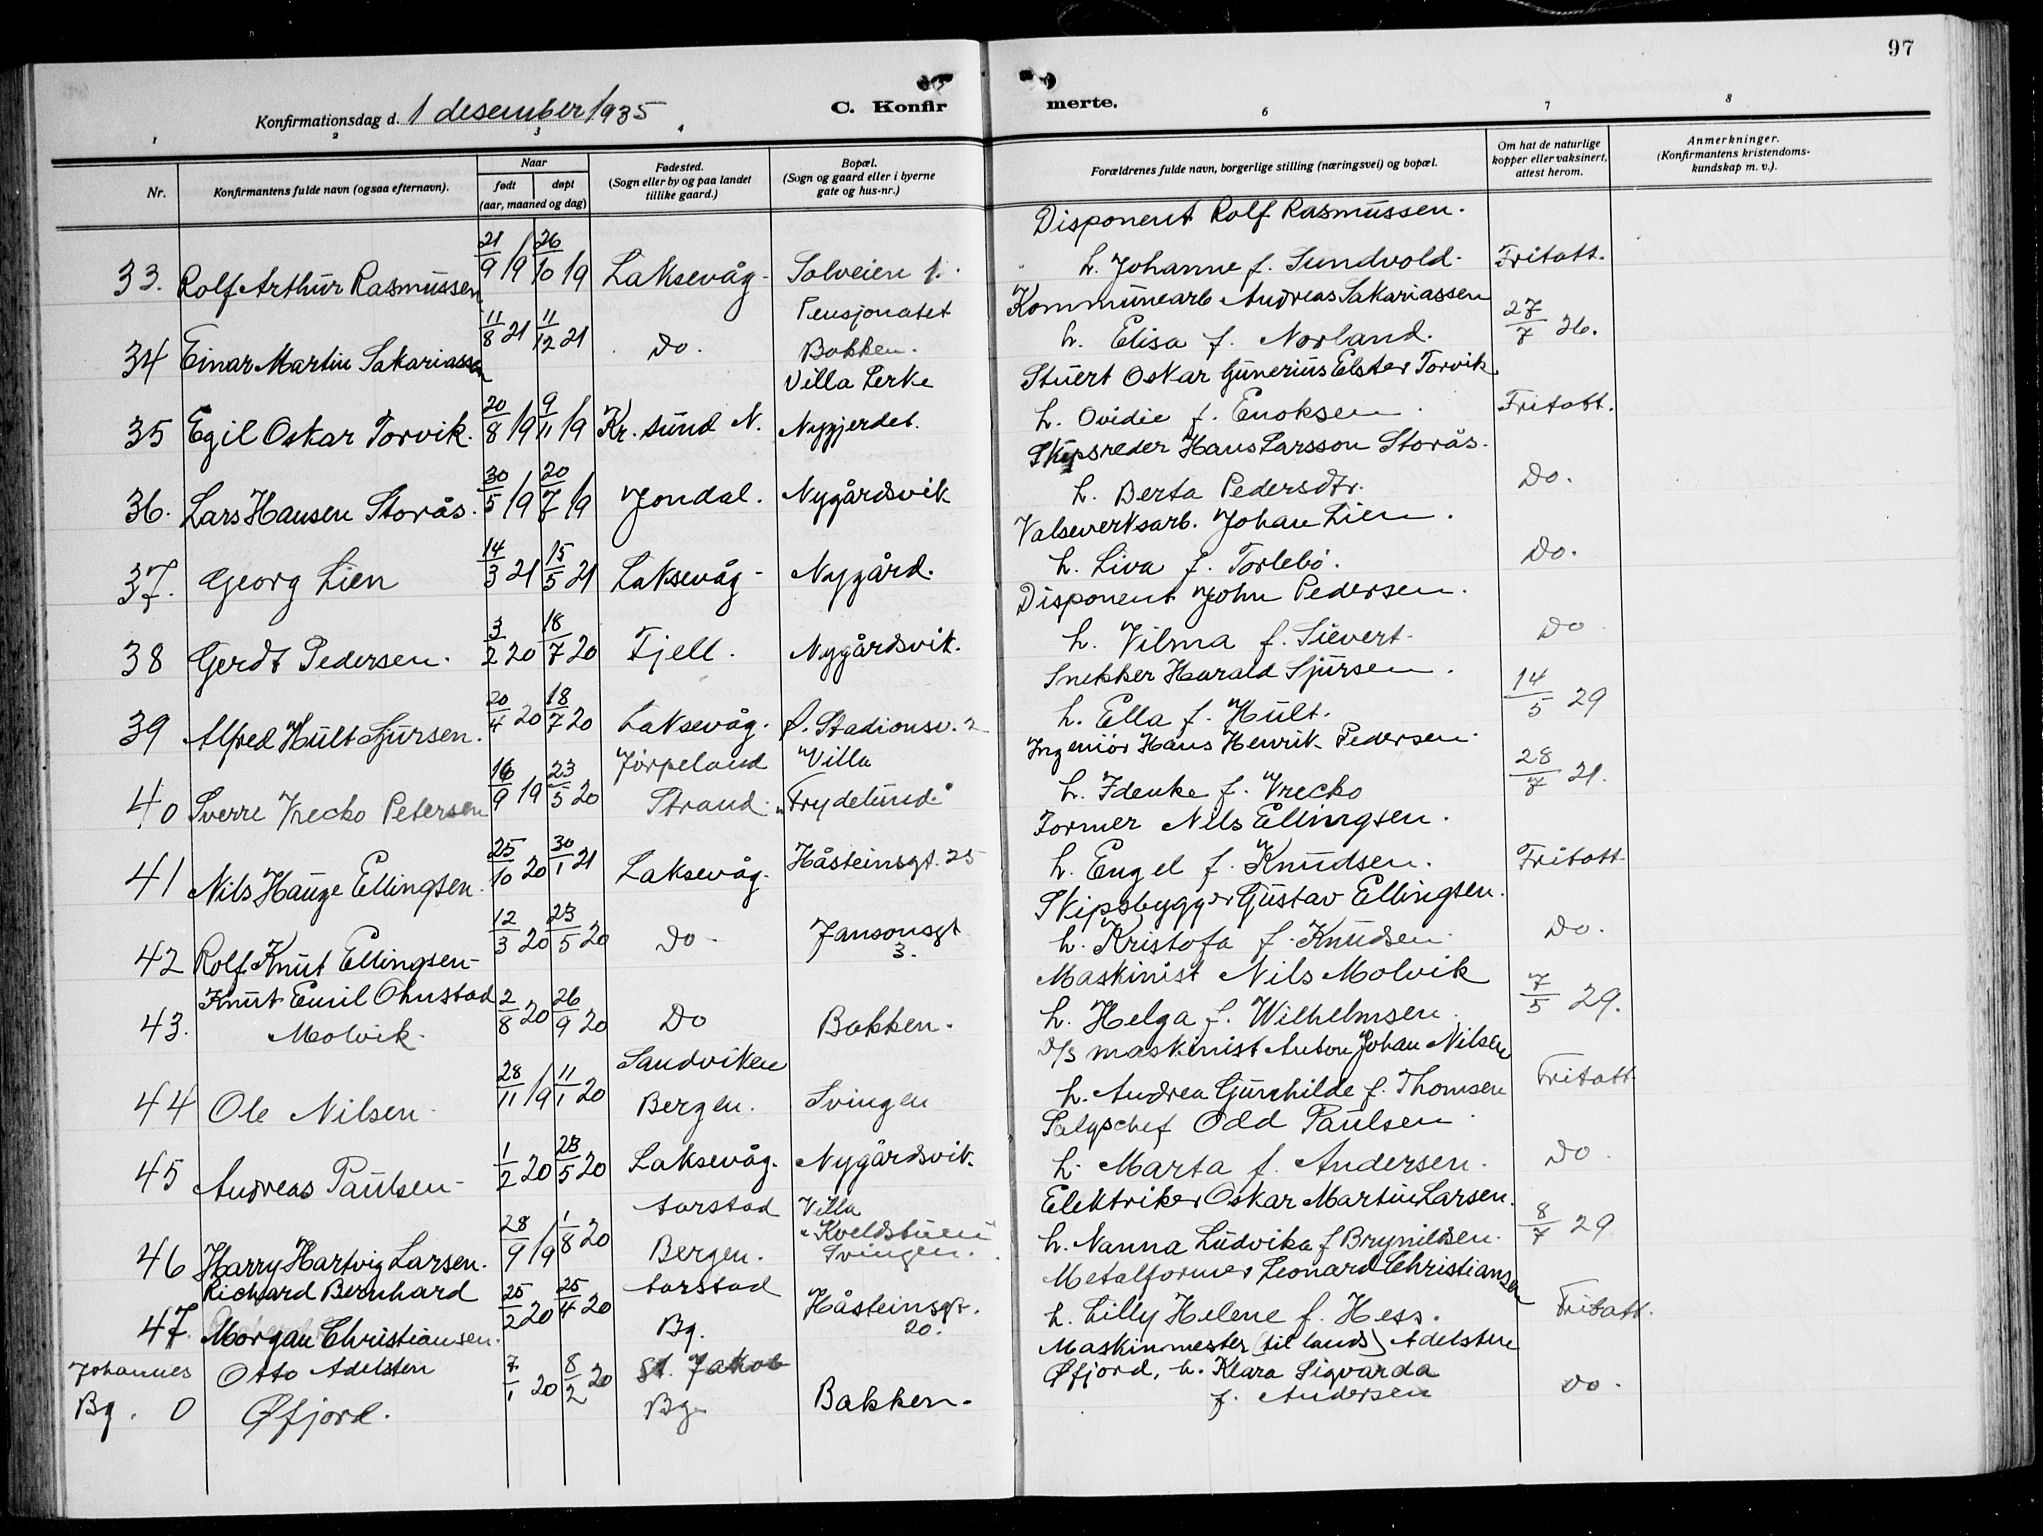 97
Konfirmationsdag d. 1 desember 1935
C. Konfirmerte.
1 2 3 4 6 7 8
Nr. Konfirmantens fulde navn (ogsaa efternavn). Naar født døpt (aar, maaned og dag) Fødested. (Sogn eller by og paa landet tillike gaard.) Bopæl. (Sogn og gaard eller i byerne gate og hus-nr.) Forældrenes fulde navn, borgerlige stilling (næringsvei) og bopæl. Om hat de naturlige kopper eller vaksinert, attest herom. Anmerkninger. (Konfirmantens kristendomskundskap m. v.).
Disponent Rolf Rasmussen.
33. Rolf Arthur Rasmussen 21/9 19 26/10 19 Laksevåg - Solveien 1. h. Johanne f. Sundvold. Fritatt.
Pensjonatet Kommunearb Andreas Sakariassen
34 Einar Martin Sakariassen 11/8 21 11/12 21 Do. Bakken. h. Elisa f. Norland. 27/7 26.
Villa Lerke Stuert Oskar Gunerius Elster Torvik
35 Egil Oskar Torvik. 20/8 19 9/11 19 Kr. sund N. Nygjerdet. h. Ovidie f. Enoksen. Fritatt.
Skipsreder Hans Larsson Storås.
36. Lars Hansen Storås. 30/5 19 20/7 19 Jondal. Nygårdsvik h. Berta Pedersdtr. Do.
Valseverksarb. Johan Lien.
37. Georg Lien 14/3 21 15/5 21 Laksevåg - Nygård. h. Liva f. Torlebö. Do.
Disponent John Pedersen.
38 Gerdt Pedersen. 3/2 20 18/7 20 Fjell. Nygårdsvik. h. Vilma f. Sievert. Do
Snekker Harald Sjursen.
39 Alfred Hult Sjursen. 20/4 20 18/7 20 Laksevåg. Stadionsv. 2 h. Ella f. Hult. 14/5 29
Jörpeland Villa Ingeniör Hans Henrik Pedersen.
40 Sverre Vrecko Petersen 16/9 19 23/5 20 Strand. "Frydelund." h. Idenke f. Vrecko 28/7 21.
Former Nils Ellingsen.
41 Nils Hauge Ellingsen. 25/10 20 30/1 21 Laksevåg. Håsteinsgt. 25 h. Engel f. Knudsen. Fritatt
Skipsbygger Gustav Ellingsen.
42 Rolf Knut Ellingsen - 12/3 20 23/5 20 Do - Jansonsgt 3. h. Kristofa f. Knudsen Do.
Knut Emil Ohnstad Maskinist Nils Molvik
43. Molvik. 2/8 20 26/9 20 Do Bakken. h. Helga f. Wilhelmsen. 7/5 29.
Sandviken D/s maskinist Anton Johan Nilsen
44 Ole Nilsen. 28/11 19 11/1 20 Bergen. Svingen h. Andrea Gunhilde f. Thomsen Fritatt
Salgschef Odd Paulsen
45 Andreas Paulsen - 1/2 20 23/5 20 Laksevåg. Nygårdsvik. h. Marta f. Andersen. Do.
Aarstad Villa Elektriker Oskar Martin Larsen.
46 Harry Hartvig Larsen. 28/9 19 1/8 20 Bergen. "Kveldstuen" Svingen. h. Nanna Ludvika f Brynildsen. 8/7 29
Richard Bernhard Aarstad Metalformer Leonard Christiansen
47. Morgan Christiansen. 25/2 20 25/4 20 Bg. Håsteinsgt. 20. h. Lilly Helene f. Hess. Fritatt.
Johannes Otto Adelsten St. Jakob Maskinmester (til lands) Adelsten
Bg. 0 Øfjord. 7/1 20 8/2 20 Bg. Bakken. Øfjord, h. Klara Sigvarda f. Andersen Do.